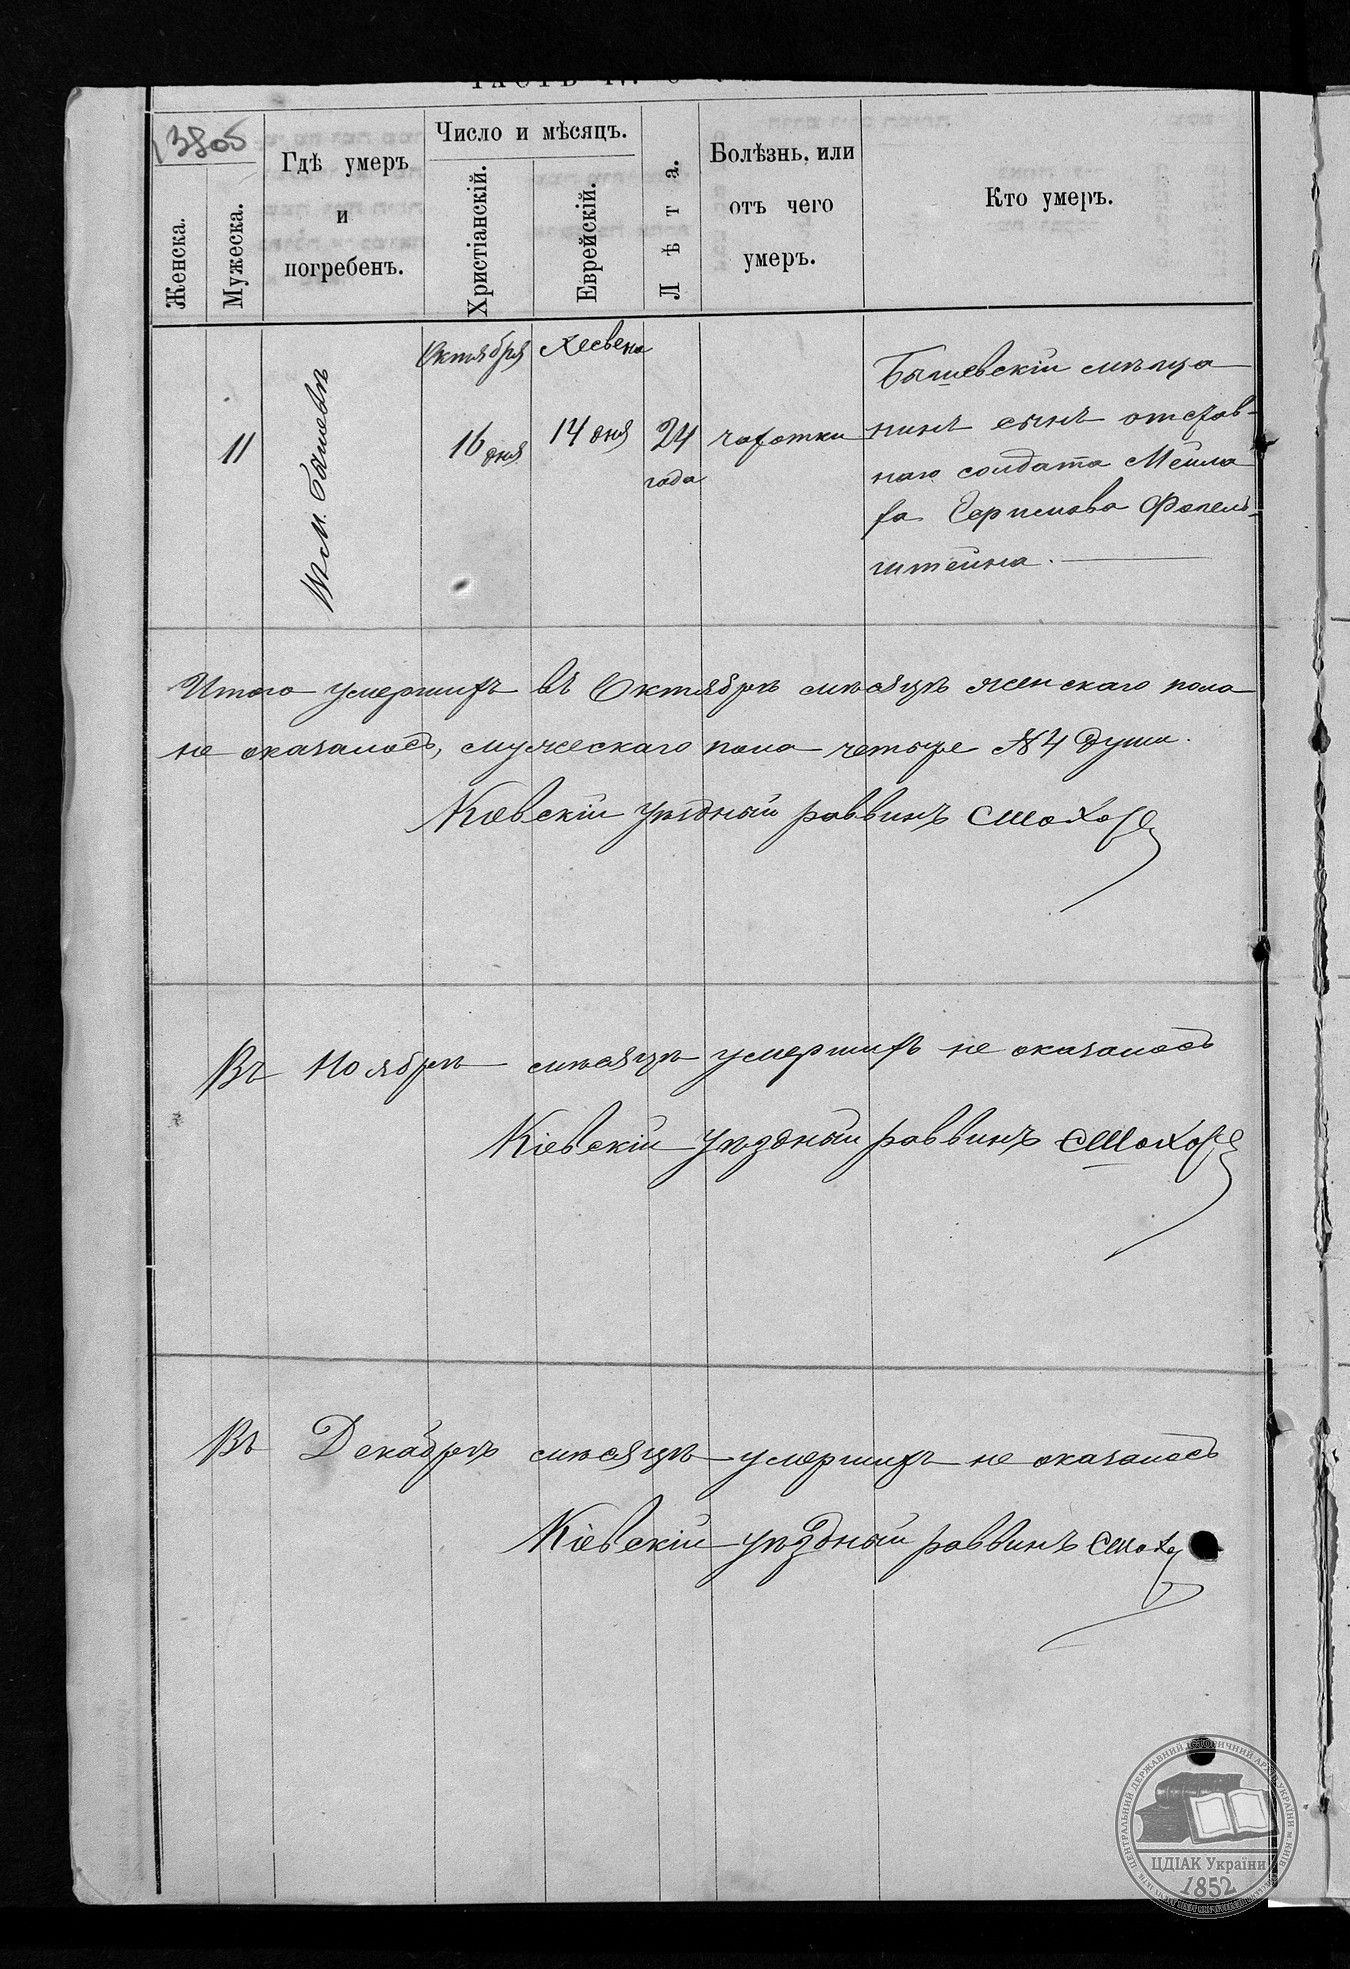 3805
Женска.
Мужеска.
Гдѣ умеръ
и
погребенъ.
Число и мѣсяцъ.
Христіанскій.
Еврейскій.
Лѣта.
Болѣзнь, или
отъ чего
умеръ.
Кто умеръ.
11
Въ м. Бышевѣ
Октября
16 дня
Хесвена
14 дня
24
года
чахотки
Бышевскій мѣща
нинъ сынъ отстав-
наго солдата Мейла
ха Берисмова
штейна.
Итого умершихъ въ Октябрѣ мѣсяцѣ женскаго пола
не оказалось, мужескаго пола четыре № 4 души.
Кіевскій уѣздный раввинъ
Въ Ноябрѣ мѣсяцѣ умершихъ не оказалось
Кіевскій уѣздный раввинъ
Въ Декабрѣ мѣсяцѣ умершихъ не оказалось
Кіевскій уѣздный раввинъ
ЦЕНТРАЛЬНИЙ ДЕРЖАВНИЙ ІСТОРИЧНИЙ АРХІВ УКРАЇНИ м. КИЇВ
ЦДІАК України
1852